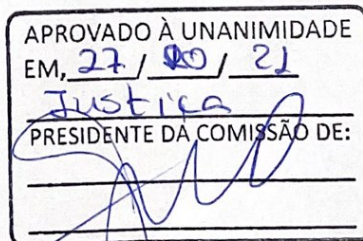 APROVADO À UNANIMIDADE
EM, 27 / 10 / 21
Justiça
PRESIDENTE DA COMISSÃO DE: